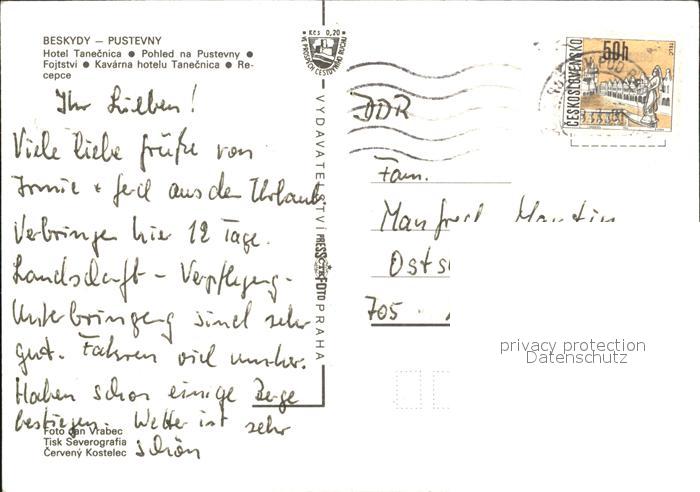 BESKYDY – PUSTEVNY
Hotel Tanečnica ● Pohled na Pustevny ●
Fojtství ● Kavárna hotelu Tanečnica ● Re-
cepce
Kčs 0,20
VE PROSPĚCH CESTOVNÍHO RUCHU
VYDAVATELSTVÍ PRESSFOTO PRAHA
ČTK
ČESKOSLOVENSKO
50h
Ihr Lieben!
Viele liebe Grüße von
+ Gerd aus dem Urlaub
Verbringen hier 12 Tage.
Landschaft - Verpflegung-
Unterbringung sind sehr
gut. Fahren viel umher.
Haben schon einige Berge
bestiegen. Wetter ist sehr
schön
DDR
Fam.
Manfred
Osts
705
privacy protection
Datenschutz
Foto Jan Vrabec
Tisk Severografia
Červený Kostelec